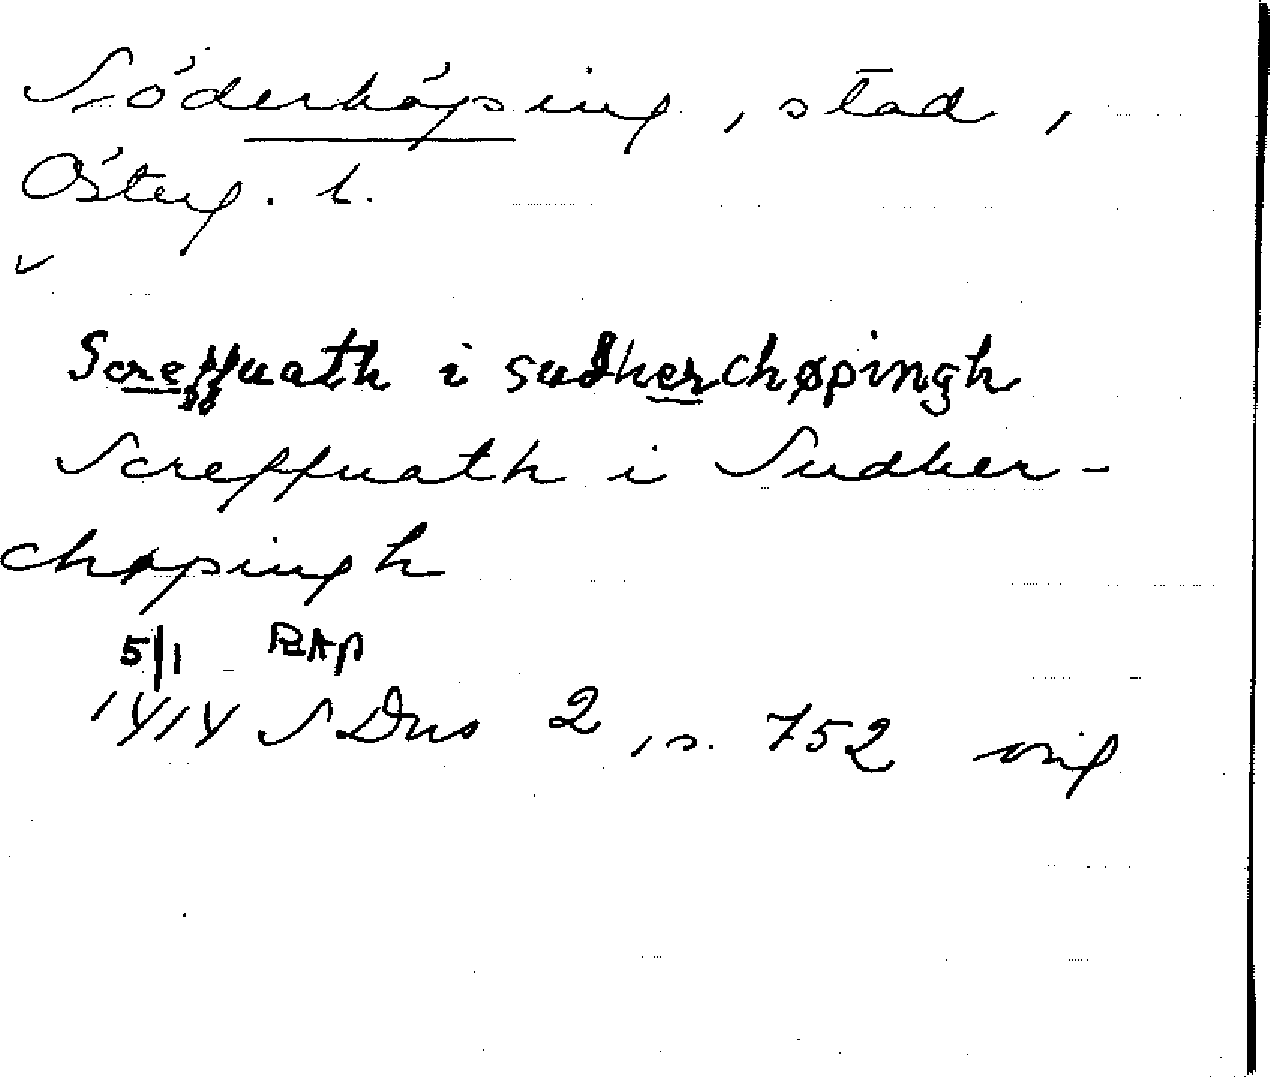 Söderköping, stad,
Österg. l.
Screffuath i sudherchøpingh
Screffuath i Sudher-
chøpingh
5/1 RAp
1414 SDns 2, s. 752 orig